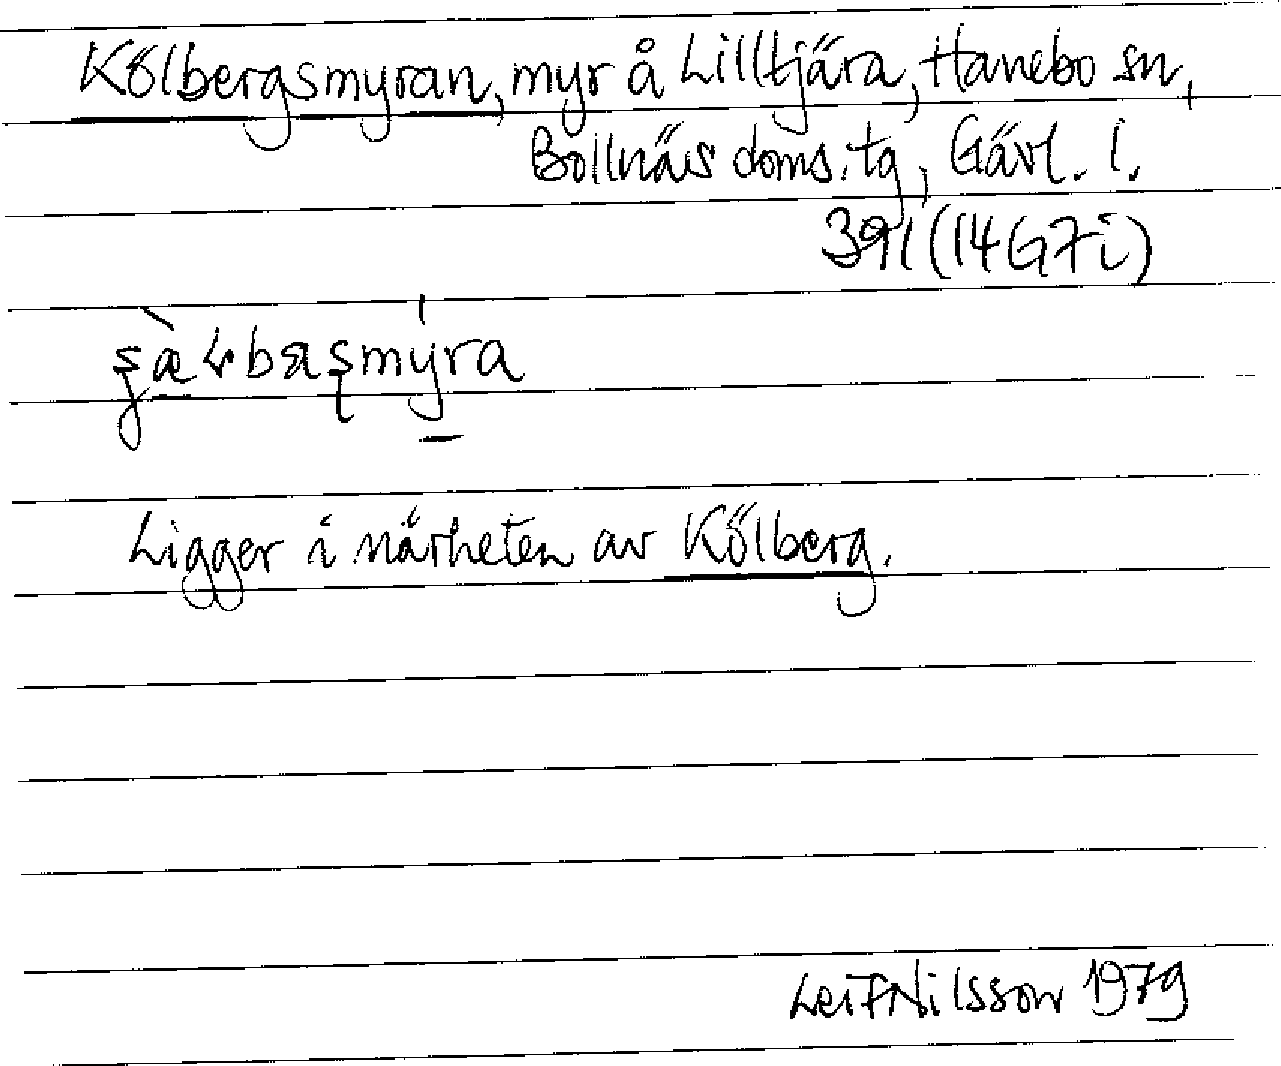 Kölbergsmyran, myr å Lilltjära, Hanebo sn,
Bollnäs doms.tg, Gävl. l.
391 (14G7i)
Ligger i närheten av Kölberg.
Leif Nilsson 1979